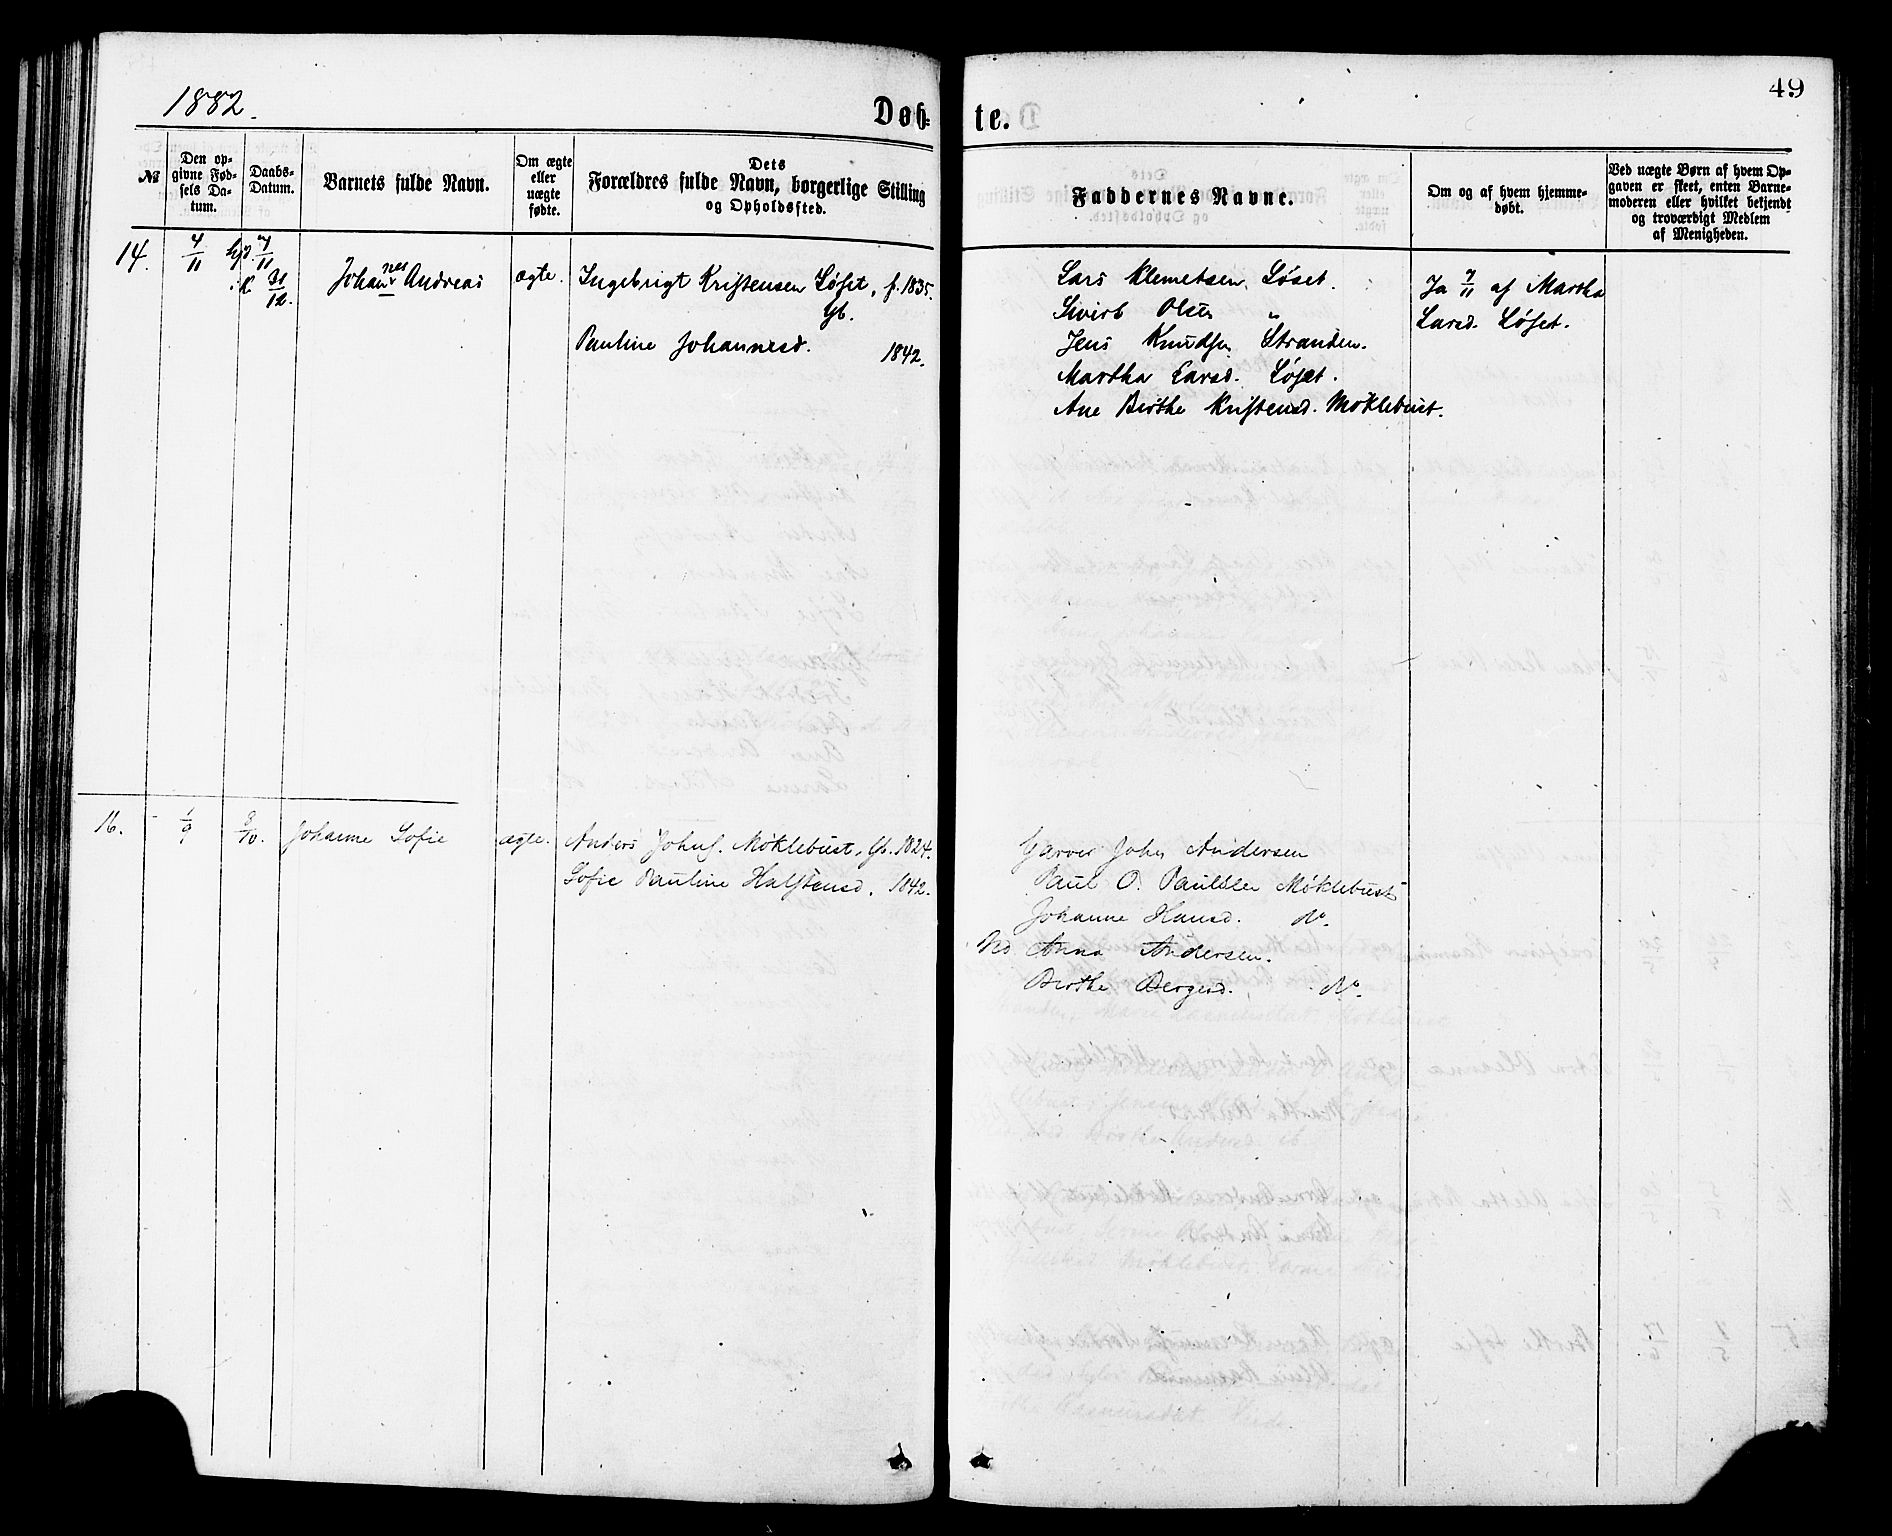 1882.
Døb-
te.
49
№
Den op-
givne Fød-
sels Da-
tum.
Daabs-
Datum.
Barnets fulde Navn.
Om ægte
eller
uægte
fødte.
Dets
Forældres fulde Navn, borgerlige Stilling
og Opholdssted.
Faddernes Navne.
Om og af hvem hjemme-
døbt.
Ved uægte Børn af hvem Op-
gaven er skeet, enten Barne-
moderen eller hvilket bekjendt
og troværdigt Medlem
af Menigheden.
14.
4/11
hjd. 7/11
i K. 31/12.
Johannes Andreas
ægte.
Ingebrigt Kristensen Løset, f. 1835.
Gb.
Pauline Johannesd. 1842.
Lars Klemetsen Løset.
Sivert Olsen "
Jens Knudsen Stranden.
Martha Larsd. Løset.
Ane Birthe Kristensd. Møklebust.
Ja 7/11 af Martha
Larsd. Løset.
16.
1/9
8/10.
Johanne Sofie
ægte.
Anders Johns. Møklebust, Gb. 1824.
Sofie Pauline Halstensd. 1842.
Garver John Andersen
Paul O. Møklebust
Johanne Hansd. do
Anna Andersen.
Birthe Bergesd. do.